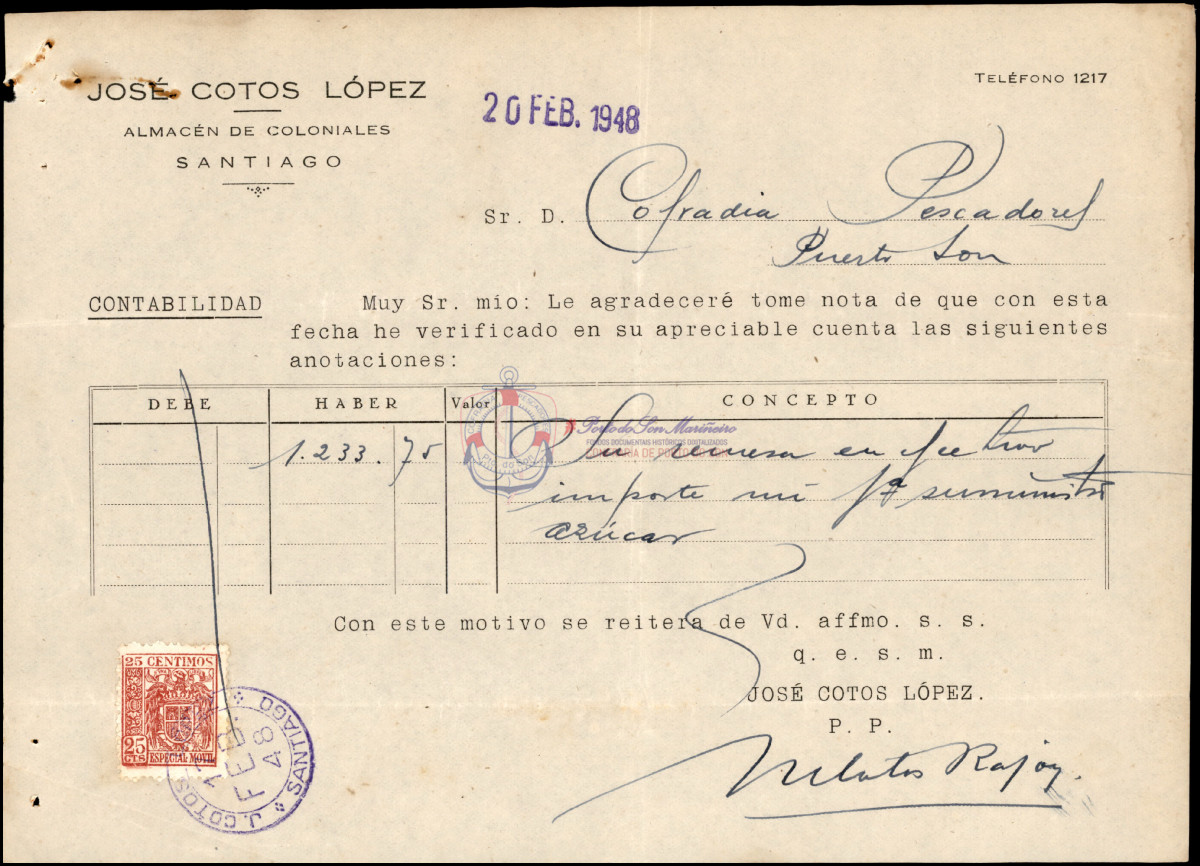 JOSÉ COTOS LÓPEZ
ALMACÉN DE COLONIALES
SANTIAGO
TELÉFONO 1217
20 FEB. 1948
Sr. D. Cofradia Pescadores
Puerto Son
CONTABILIDAD
Muy Sr. mio: Le agradeceré tome nota de que con esta
fecha he verificado en su apreciable cuenta las siguientes
anotaciones:
DEBE HABER Valor CONCEPTO
1.233.75 Su remesa en
importe mi fª suministro
azúcar
Porto do Son Mariñeiro
FONDOS DOCUMENTAIS HISTÓRICOS DIXITALIZADOS
CONFRARÍA DE PORTO DO SON
Con este motivo se reitera de Vd. affmo. s. s.
q. e. s. m.
JOSÉ COTOS LÓPEZ.
P. P.
Rajoy
25 CENTIMOS
25 CTS
ESPECIAL MOVIL
J. COTOS
SANTIAGO
FEB. 48